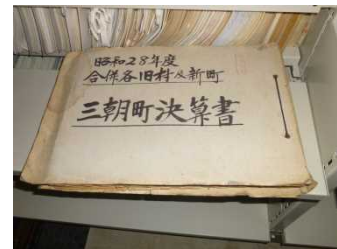 昭和28年度
合併各旧村及新町
三朝町決算書